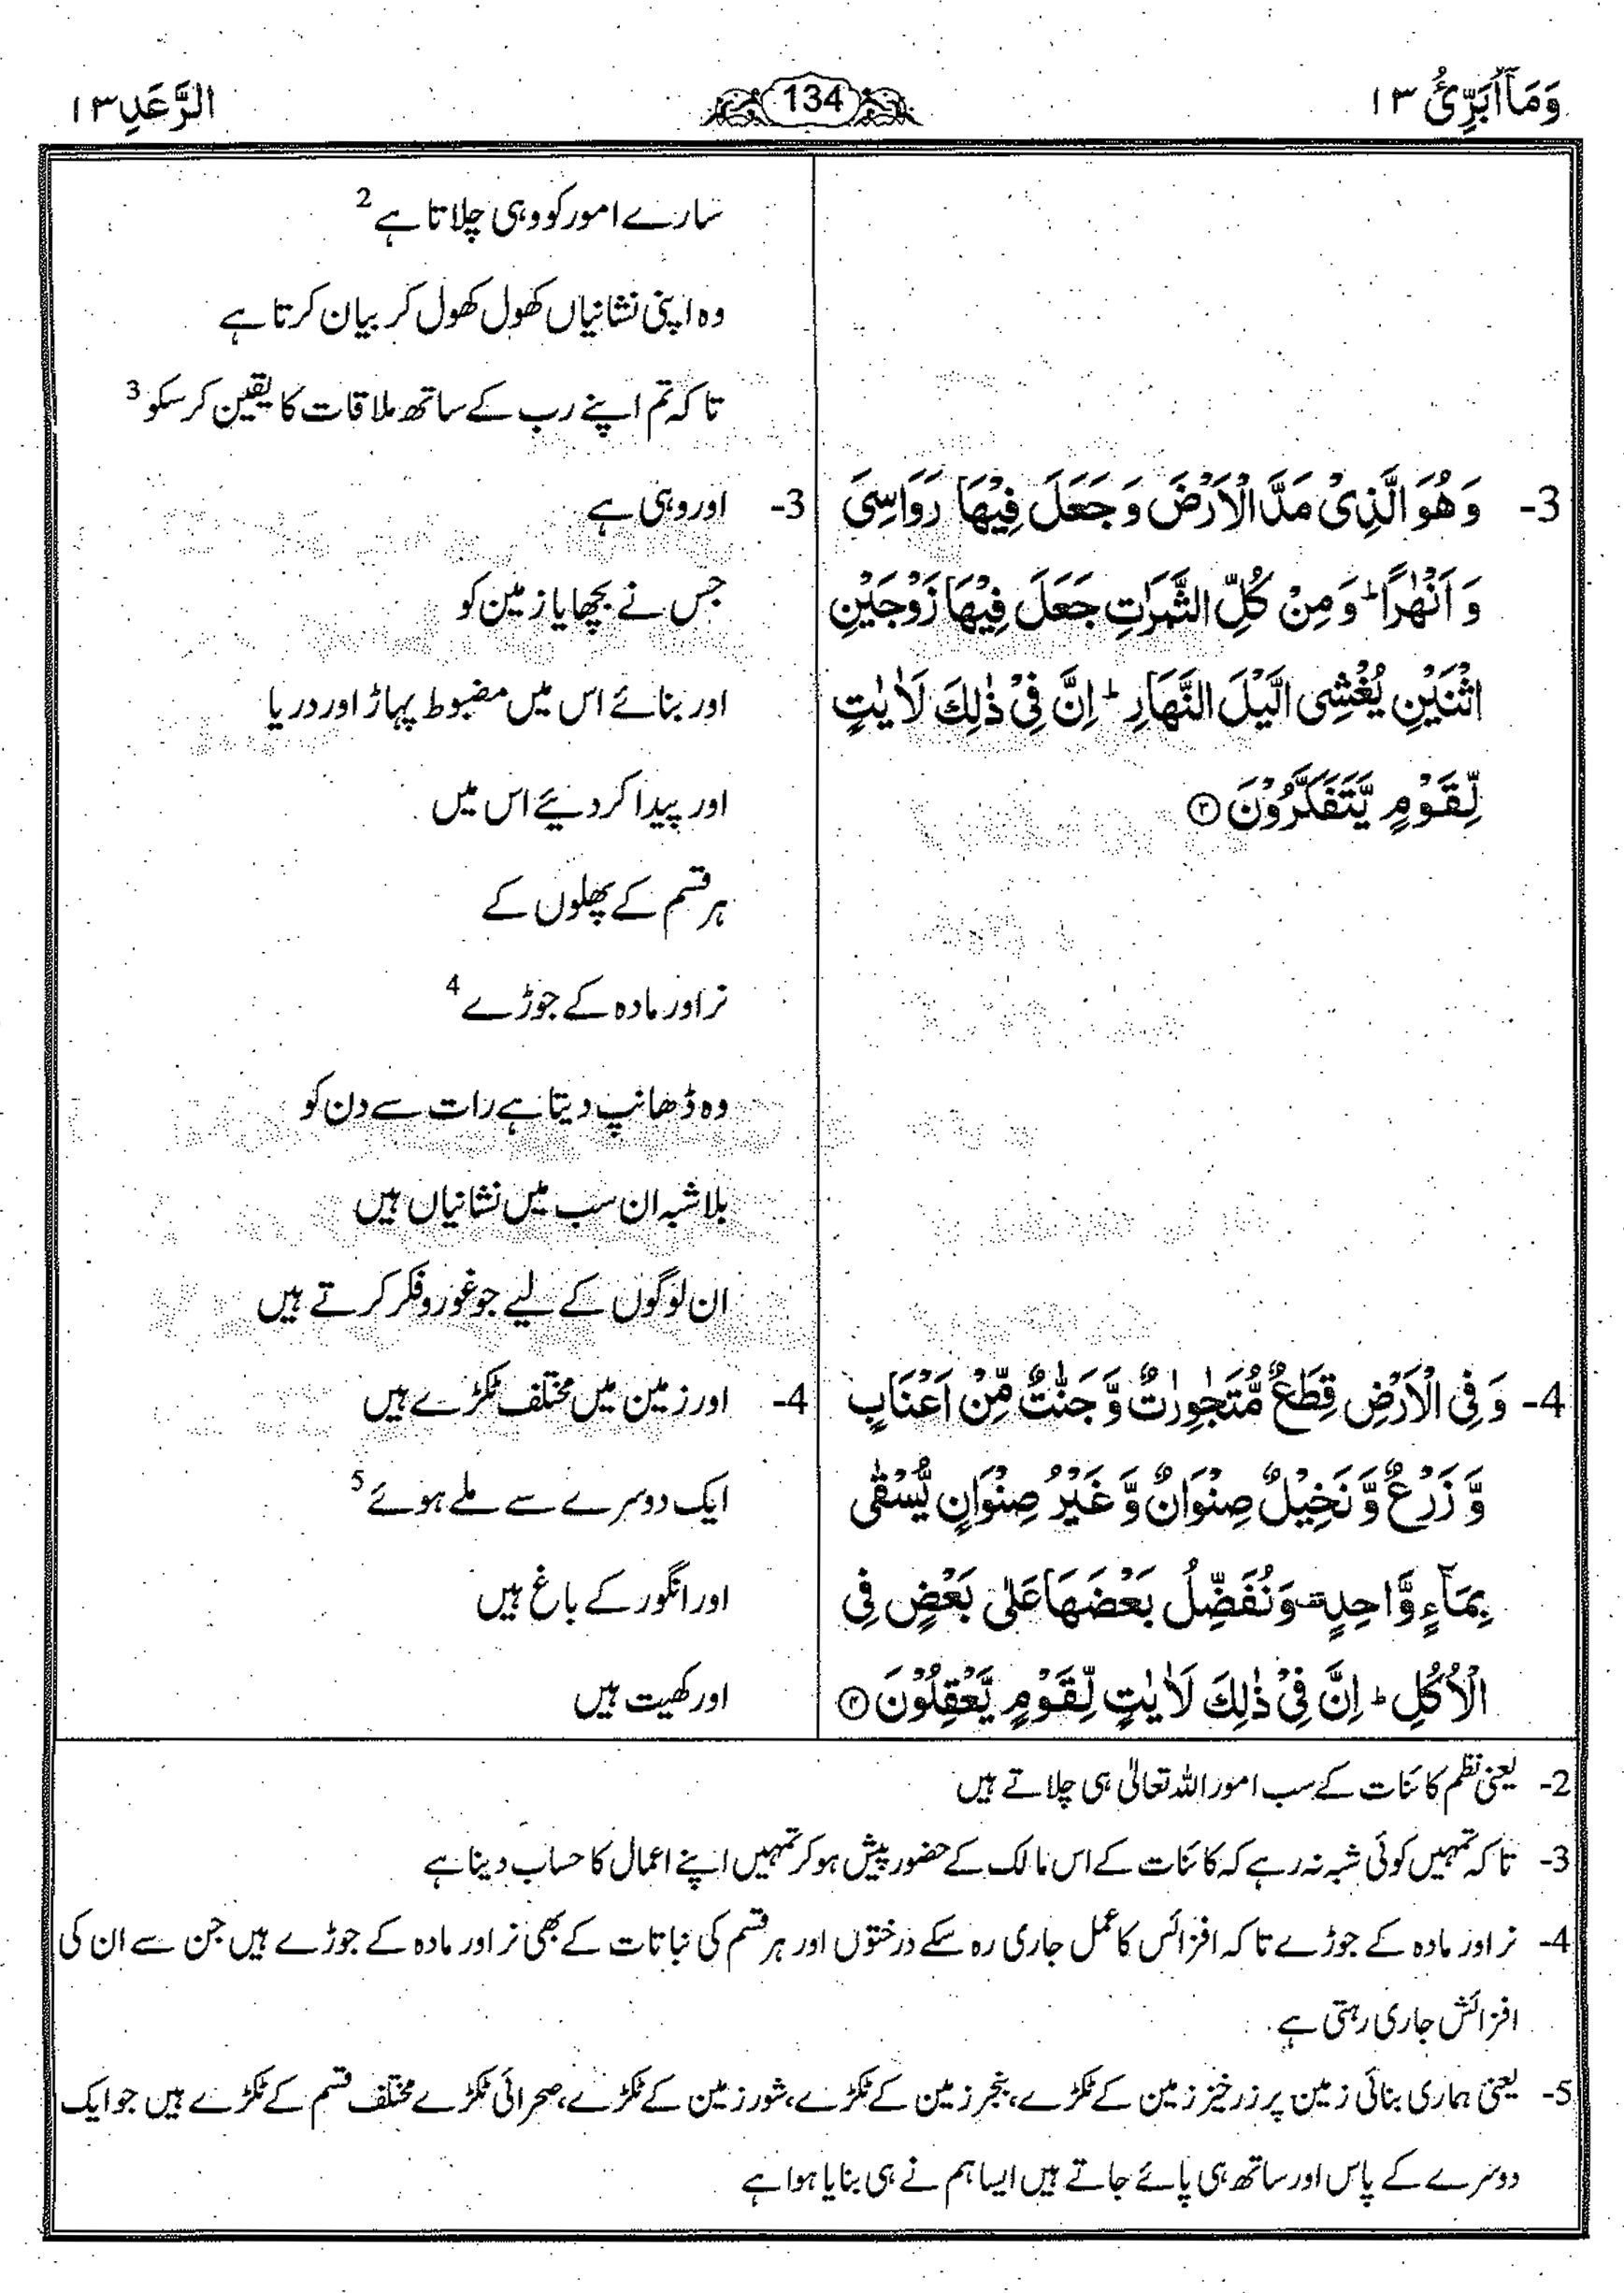 وَمَآ اُبَرِّئُ ١٣
134
الرَّعَدِ ١٣
3- وَ هُوَ الَّذِیْ مَدَّ الْاَرْضَ وَ جَعَلَ فِیْهَا رَوَاسِیَ
وَ اَنْهٰرًا ؕ وَ مِنْ كُلِّ الثَّمَرٰتِ جَعَلَ فِیْهَا زَوْجَیْنِ
اثْنَیْنِ یُغْشِی الَّیْلَ النَّهَارَ ؕ اِنَّ فِیْ ذٰلِكَ لَاٰیٰتٍ
لِّقَوْمٍ یَّتَفَكَّرُوْنَ ۝٣
4- وَ فِی الْاَرْضِ قِطَعٌ مُّتَجٰوِرٰتٌ وَّ جَنّٰتٌ مِّنْ اَعْنَابٍ
وَّ زَرْعٌ وَّ نَخِیْلٌ صِنْوَانٌ وَّ غَیْرُ صِنْوَانٍ یُّسْقٰى
بِمَآءٍ وَّاحِدٍ وَنُفَضِّلُ بَعْضَهَا عَلٰى بَعْضٍ فِی
الْاُكُلِ ؕ اِنَّ فِیْ ذٰلِكَ لَاٰیٰتٍ لِّقَوْمٍ یَّعْقِلُوْنَ ۝٤
سارے امور کو وہی چلاتا ہے 2
وہ اپنی نشانیاں کھول کھول کر بیان کرتا ہے
تاکہ تم اپنے رب کے ساتھ ملاقات کا یقین کر سکو 3
3- اور وہی ہے
جس نے بچھایا زمین کو
اور بنائے اس میں مضبوط پہاڑ اور دریا
اور پیدا کر دیئے اس میں
ہر قسم کے پھلوں کے
نر اور مادہ کے جوڑے 4
وہ ڈھانپ دیتا ہے رات سے دن کو
بلا شبہ ان سب میں نشانیاں ہیں
ان لوگوں کے لیے جو غور و فکر کرتے ہیں
4- اور زمین میں مختلف ٹکڑے ہیں
ایک دوسرے سے ملے ہوئے 5
اور انگور کے باغ ہیں
اور کھیت ہیں
2- یعنی نظم کائنات کے سب امور اللہ تعالٰی ہی چلاتے ہیں
3- تاکہ تمہیں کوئی شبہ نہ رہے کہ کائنات کے اس مالک کے حضور پیش ہو کر تمہیں اپنے اعمال کا حساب دینا ہے
4- نر اور مادہ کے جوڑے تاکہ افزائس کا عمل جاری رہ سکے درختوں اور ہر قسم کی نباتات کے بھی نر اور مادہ کے جوڑے ہیں جن سے ان کی
افزائش جاری رہتی ہے
5- یعنی ہماری بنائی زمین پر زرخیز زمین کے ٹکڑے، بنجر زمین کے ٹکڑے، شور زمین کے ٹکڑے، صحرائی ٹکڑے مختلف قسم کے ٹکڑے ہیں جو ایک
دوسرے کے پاس اور ساتھ ہی پائے جاتے ہیں ایسا ہم نے ہی بنایا ہوا ہے